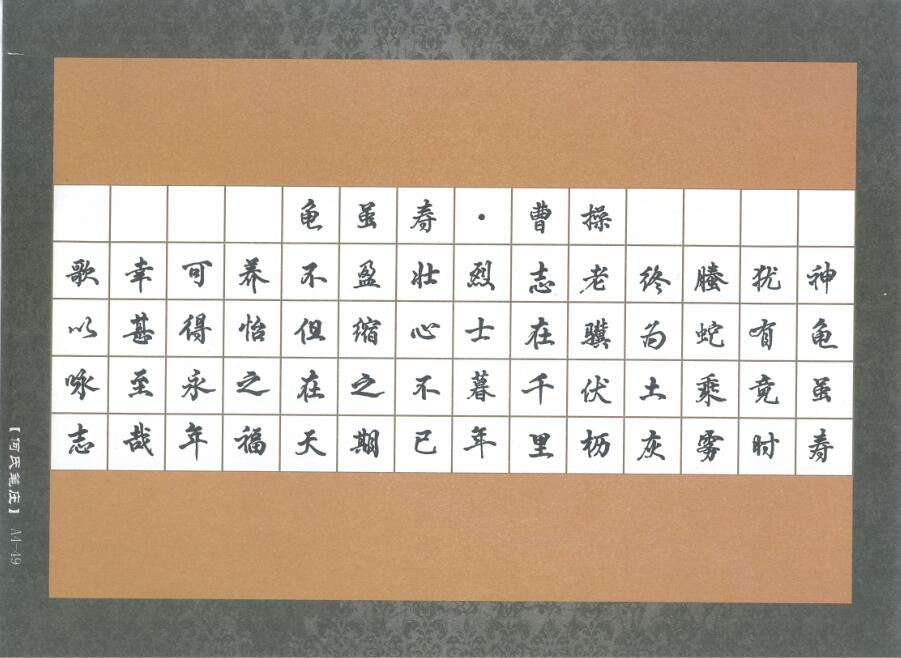 龟虽寿·曹操
神龟虽寿
犹有竟时
螣蛇乘雾
终为土灰
老骥伏枥
志在千里
烈士暮年
壮心不已
盈缩之期
不但在天
养怡之福
可得永年
幸甚至哉
歌以咏志
【何氏笔庄】 A4-49